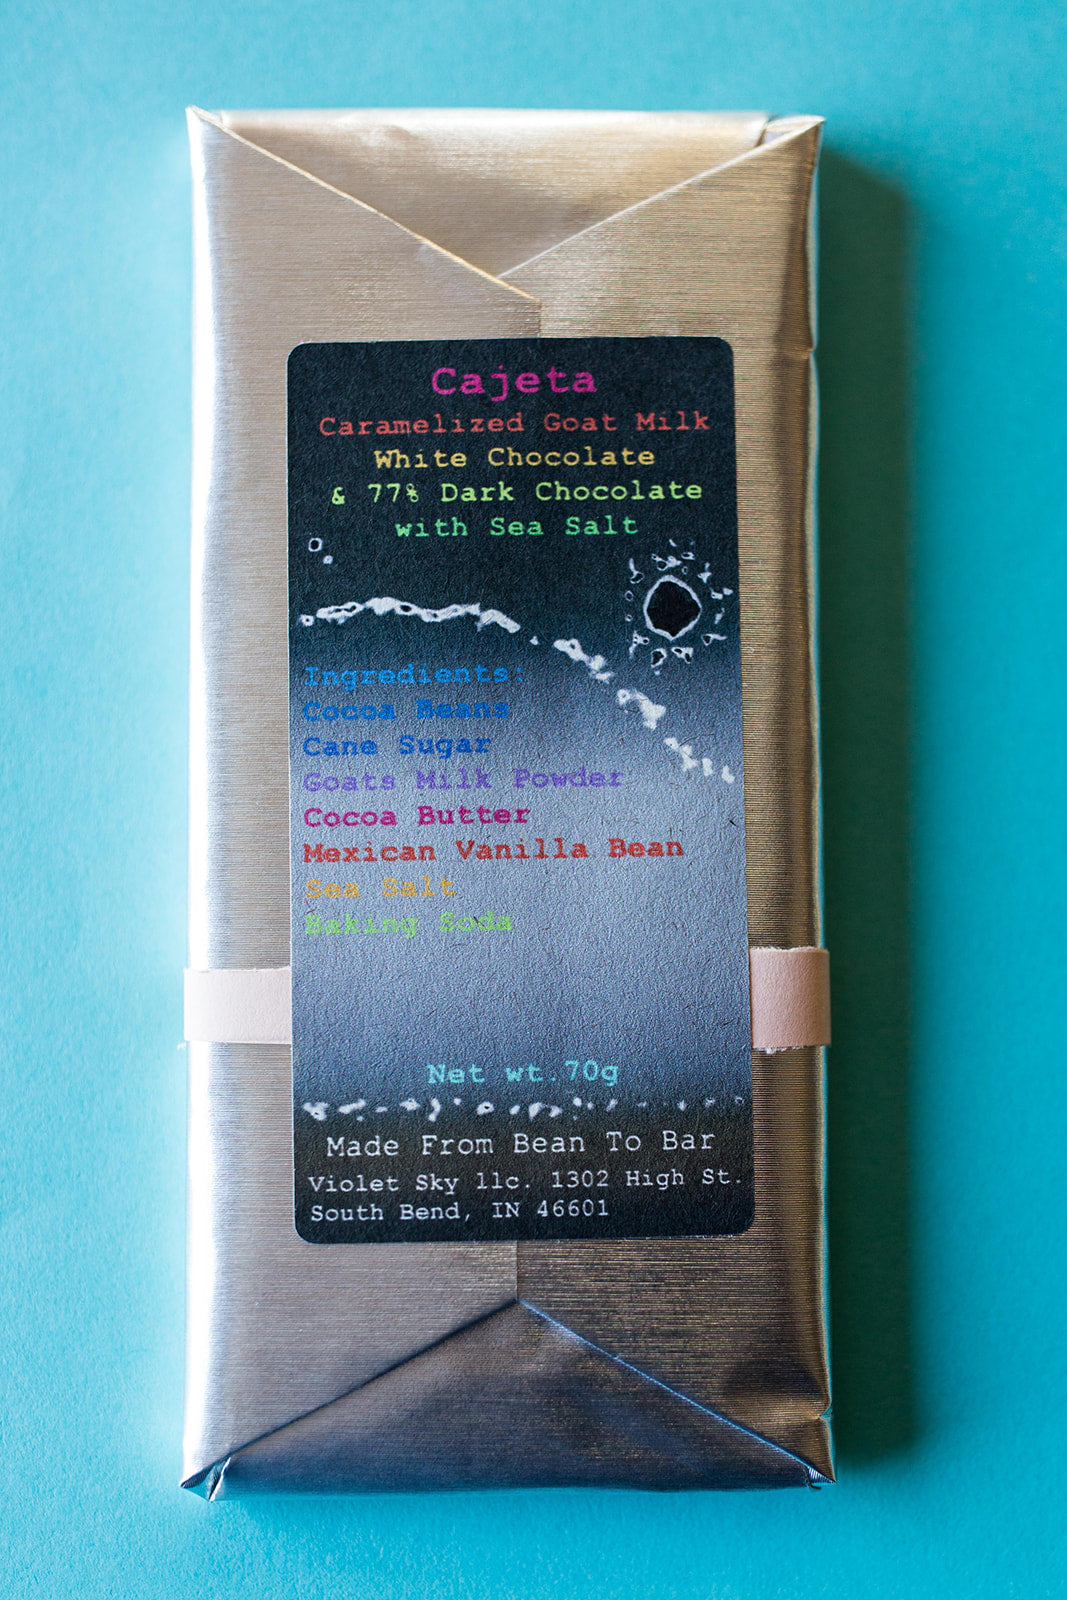 Cajeta
Caramelized Goat Milk
White Chocolate
& 77% Dark Chocolate
with Sea Salt
Ingredients:
Cocoa Beans
Cane Sugar
Goats Milk Powder
Cocoa Butter
Mexican Vanilla Bean
Sea Salt
Baking Soda
Net wt.70g
Made From Bean To Bar
Violet Sky llc. 1302 High St.
South Bend, IN 46601